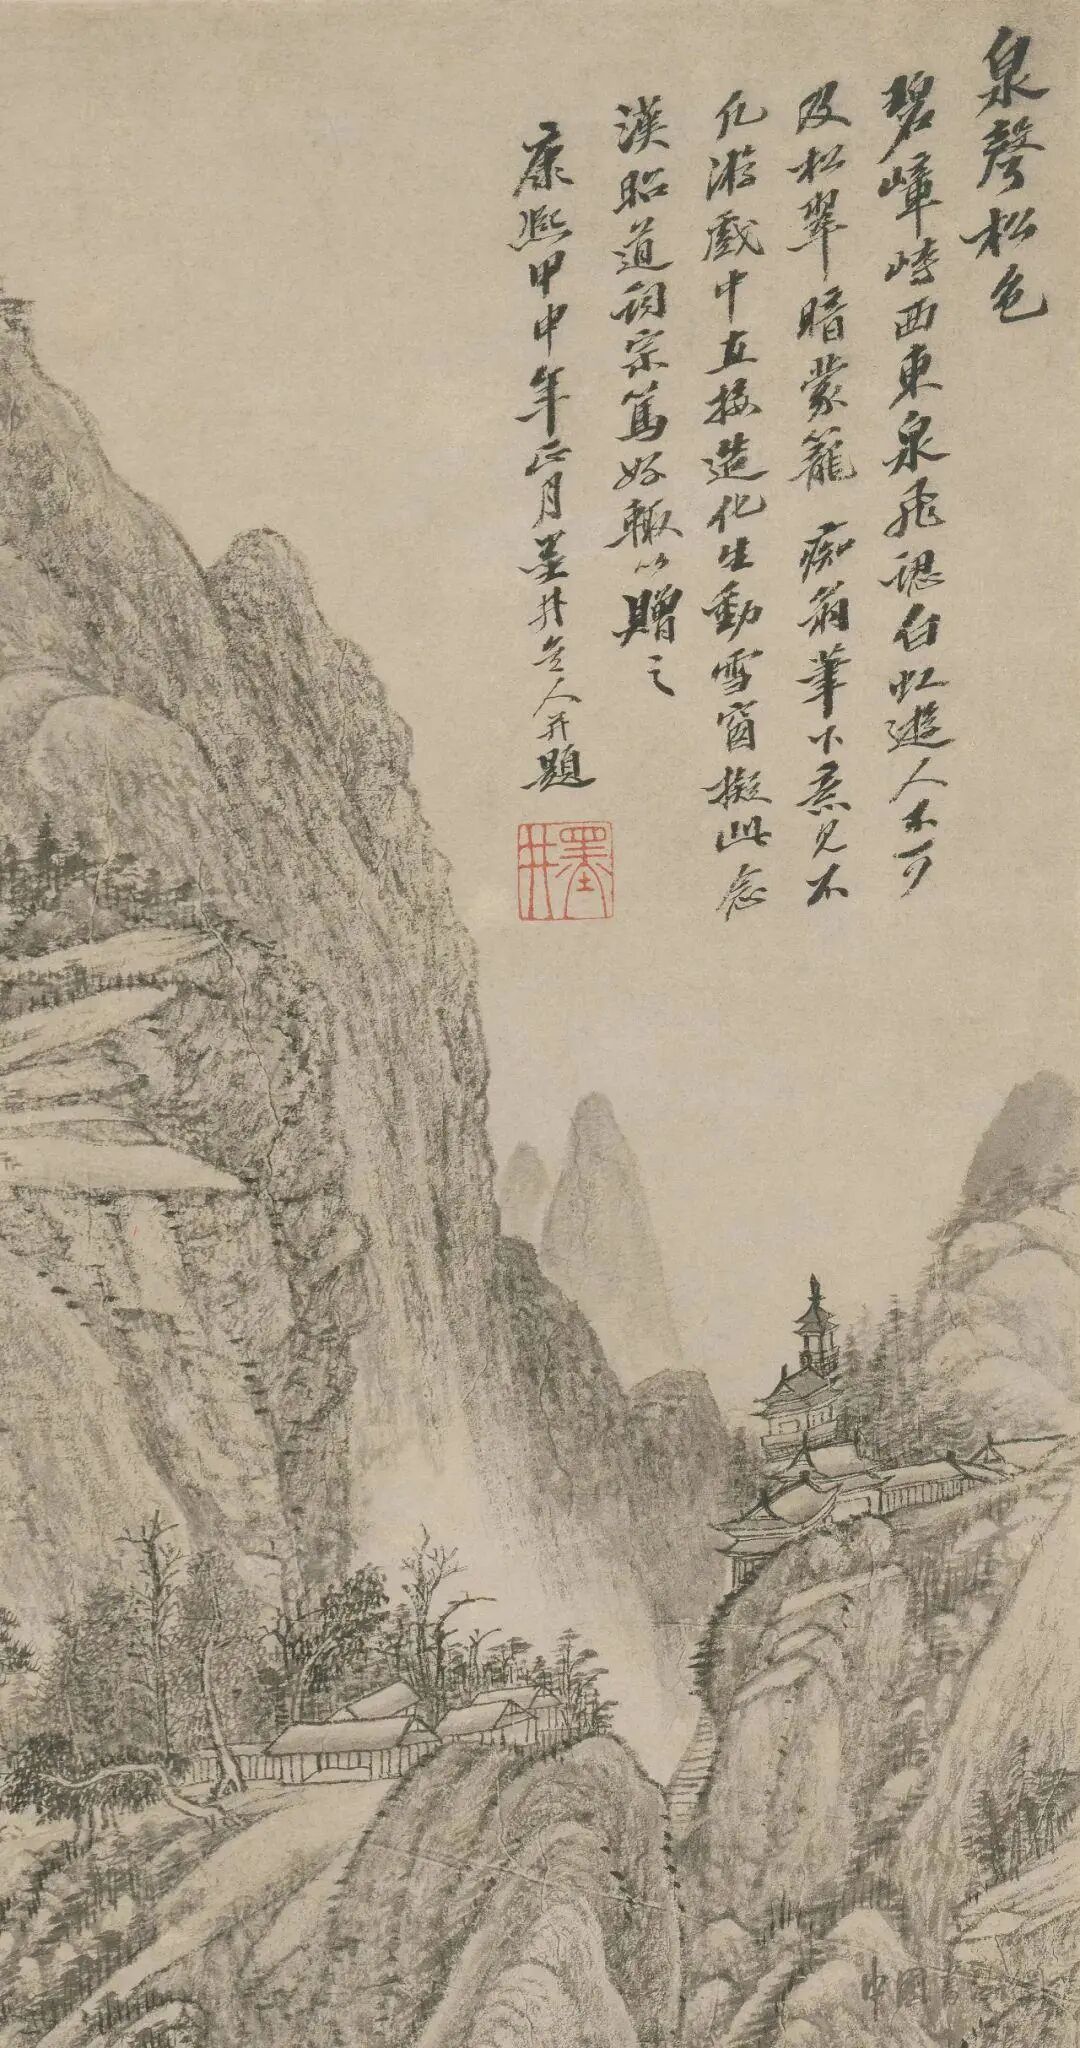 泉聲松色
碧嶂峙西東泉飛認白虹遊人不可
及松翠暗蒙籠 痴翁筆下意見不
凡游戲中直接造化生動雪窗擬此念
漢昭道詞宗篤好輒以贈之
康熙甲申年正月墨井道人并題
墨井
中国書